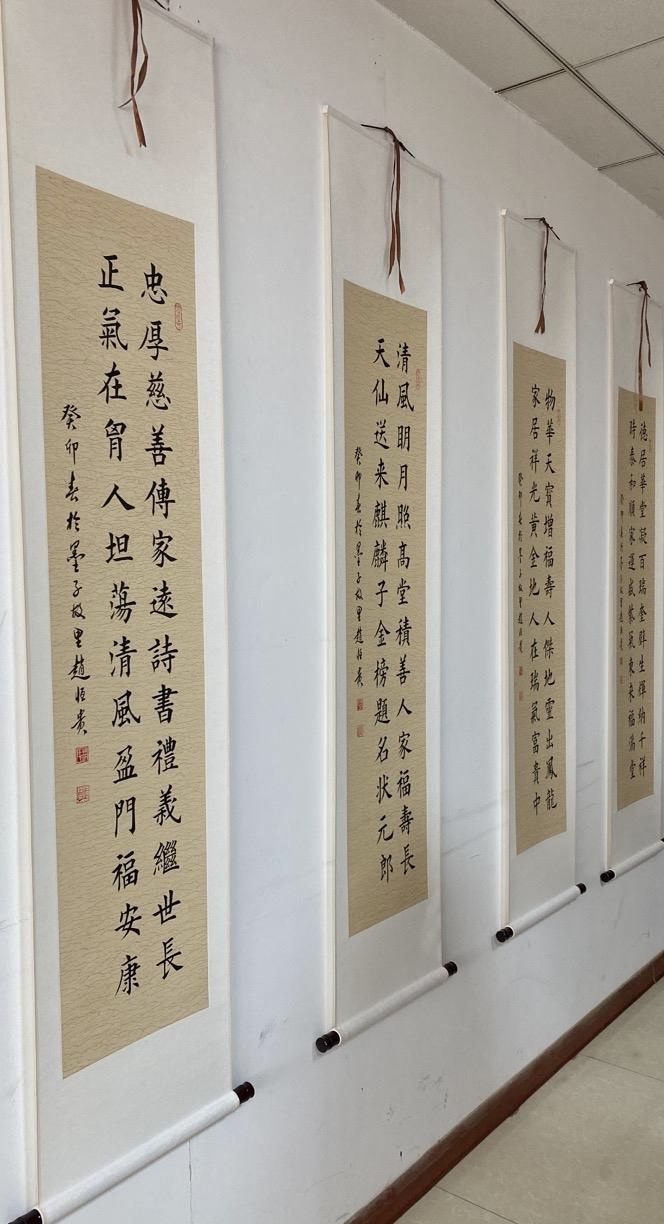 忠厚慈善傳家遠詩書禮義繼世長
正氣在胷人坦蕩清風盈門福安康
癸卯春於墨子故里趙恒貴
清風眀月照高堂積善人家福壽長
天仙送来麒麟子金榜題名状元郎
癸卯春於墨子故里趙恒貴
物華天寳增福壽人傑地靈出鳳龍
家居祥光黄金地人在瑞氣富貴中
癸卯春於墨子故里趙恒貴
德居華堂凝百瑞奎壁生輝納千祥
時泰和順家運盛紫氣東来福满堂
癸卯春於墨子故里趙恒貴